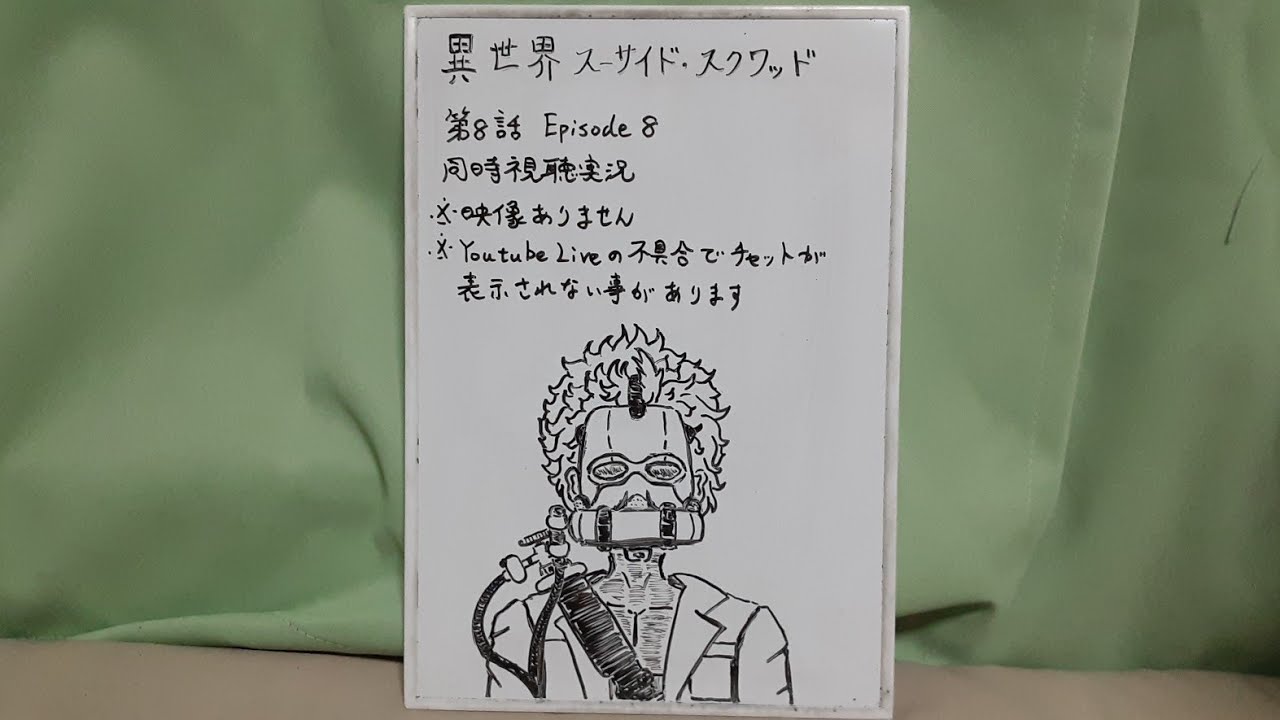 異世界 スーサイド・スクワッド
第8話 Episode 8
同時視聴実況
※映像ありません
※Youtube Liveの不具合でチャットが
表示されない事があります